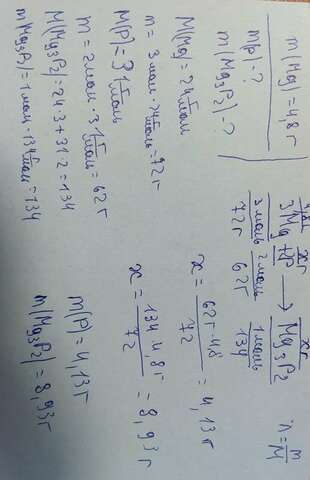 m(Mg)=4,8г
m(P)-?
m(Mg3P2)-?
M(Mg)=24г/моль
m=3моль·24г/моль=72г
M(P)=31г/моль
m=2моль·31г/моль=62г
M(Mg3P2)=24·3+31·2=134
m(Mg3P2)=1моль·134г/моль=134
4,8г xг xг
3Mg+2P → Mg3P2
3моль 2моль 1моль
72г 62г 134
n=m/M
x=62г·4,8/72=4,13г
x=134·4,8г/72=8,93г
m(P)=4,13г
m(Mg3P2)=8,93г